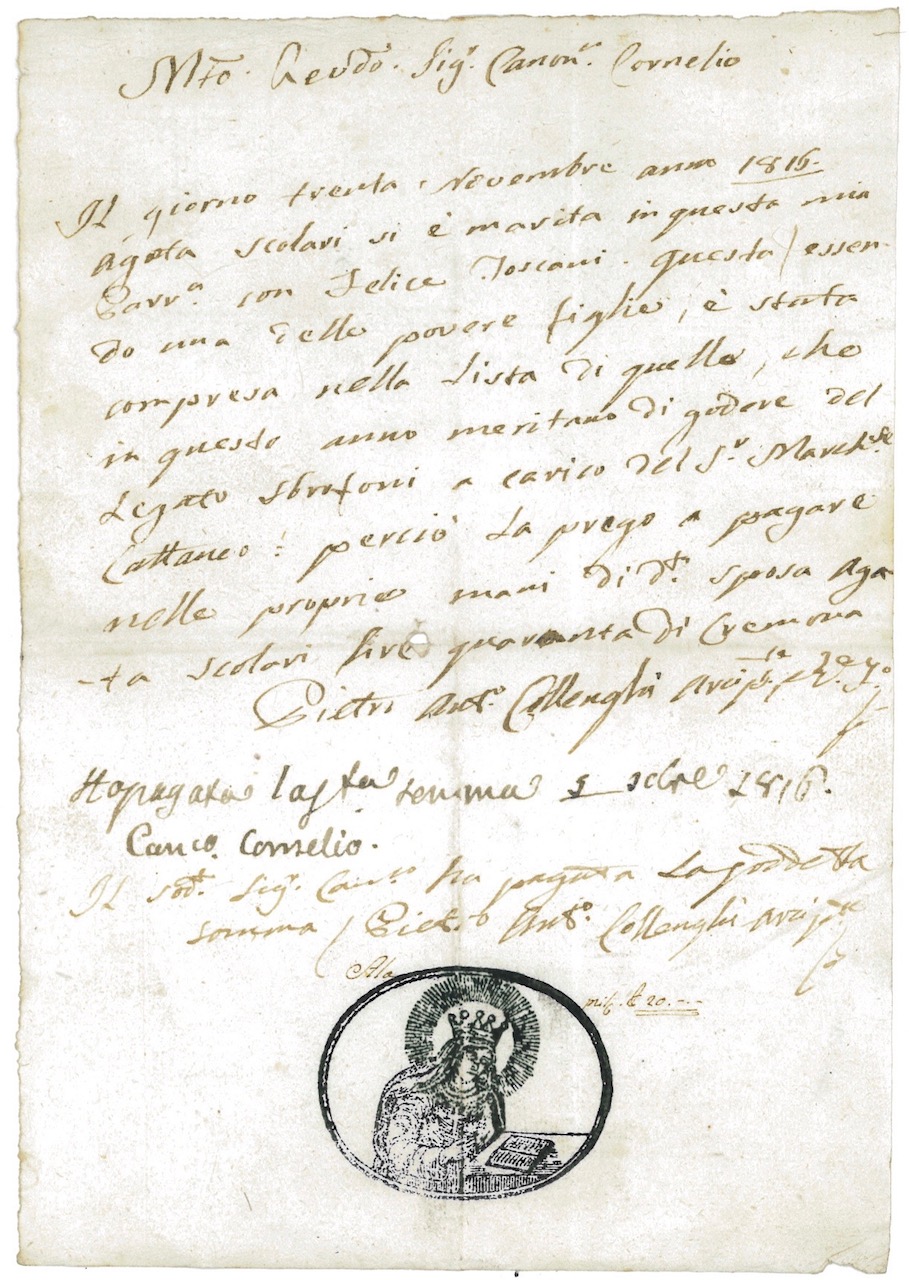 Mto. Revdo. Sigr. Canonco. Cornelio
Il giorno trenta Novembre anno 1816.
Agata Scolari si è marita in questa mia
Parra con Felice Toscani. questa / essen-
do una delle povere figlie, è stata
compresa nella Lista di quelle, che
in questo anno meritano di godere del
Legato Sbrofoni a carico del Sr. Marchese
Cattaneo: perciò La prego a pagare
nelle proprie mani di dta. sposa Aga-
-ta Scolari lire quaranta di Cremona
Pietro Anto. Collenghi
Ho pagata la somma 1816.
Canco. Cornelio.
Il Sigr. Canco ha pagata La soddetta
somma / Pietro Anto. Collenghi
20.---